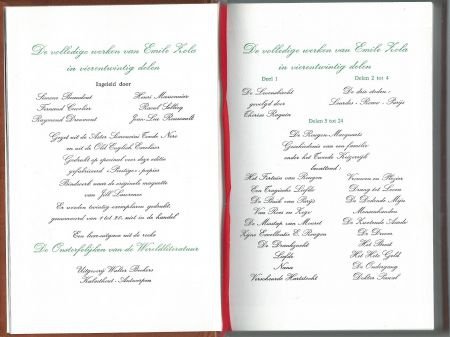 De volledige werken van Emile Zola
in vierentwintig delen
Ingeleid door
Simone Beaudout
Fernand Cuvelier
Raymond Drevmont
Henri Massonnier
Raoul Sellerg
Jean-Luc Rousseault
Gezet uit de Aster Simoncini Corda Nera
en uit de Old English Excelsior
Gedrukt op speciaal voor deze editie
gefabriceerd Prestige-papier
Bindwerk naar de originele maquette
van Jill Laurence
Er worden twintig exemplaren gedrukt,
genummerd van 1 tot 20, niet in de handel
Een luxe-uitgave uit de reeks
De Onsterfelijken van de Wereldliteratuur
Uitgeverij Walter Beckers
Kalmthout-Antwerpen
De volledige werken van Emile Zola
in vierentwintig delen
Deel 1
De Levenslucht
gevolgd door
Thérèse Raquin
Delen 2 tot 4
De drie steden:
Lourdes - Rome - Parijs
Delen 5 tot 24
De Rougon-Macquarts
Geschiedenis van een familie
onder het Tweede Keizerrijk
bevattend:
Het Fortuin van Rougon
Een Tragische Liefde
De Buik van Parijs
Van Rivi en Zege
De Misstap van Mouret
Zijne Excellentie E. Rougon
De Drankzucht
Liefde
Nana
Verscheurde Hartstocht
Vrouwen en Plezier
Drang tot Leven
De Dodende Mijn
Mensenhanden
De Zwoegende Aarde
De Droom
Het Beest
Het Hete Geld
De Ondergang
Dokter Pascal